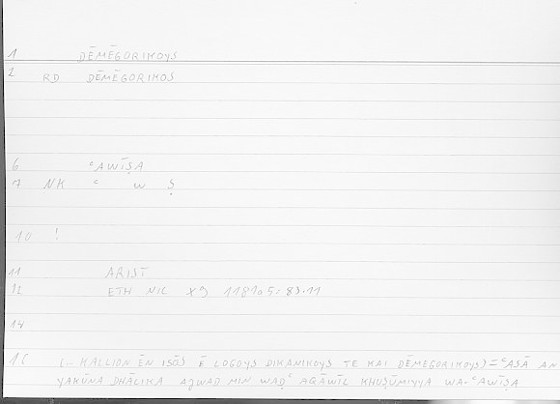 1 DĒMĒGORIKOYS
2 RD DĒMĒGORIKOS
6 ʿAWĪṢA
7 NK ʿ W Ṣ
10 !
11 ARIST
12 ETH NIC X 9 1181a5: 83.11
14
16 (... KALLION ĒN ISŌS Ē LOGOYS DIKANIKOYS TE KAI DĒMEGORIKOYS) = ʿASĀ AN
YAKŪNA DHĀLIKA AJWAD MIN WAḌʿ AQĀWĪL KHUṢŪMIYYA WA-ʿAWĪṢA